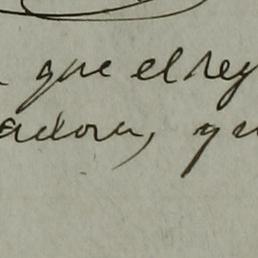 que el rey
adora, qu